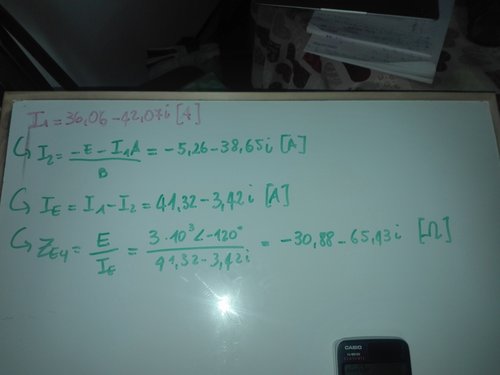 I₁ = 36,06 - 42,07i [A]
↳ I₂ = (-E - I₁A)/B = -5,26 - 38,65i [A]
↳ I_E = I₁ - I₂ = 41,32 - 3,42i [A]
↳ Z_Eq = E/I_E = (3·10³∠-120°)/(41,32 - 3,42i) = -30,88 - 65,43i [Ω]
CASIO